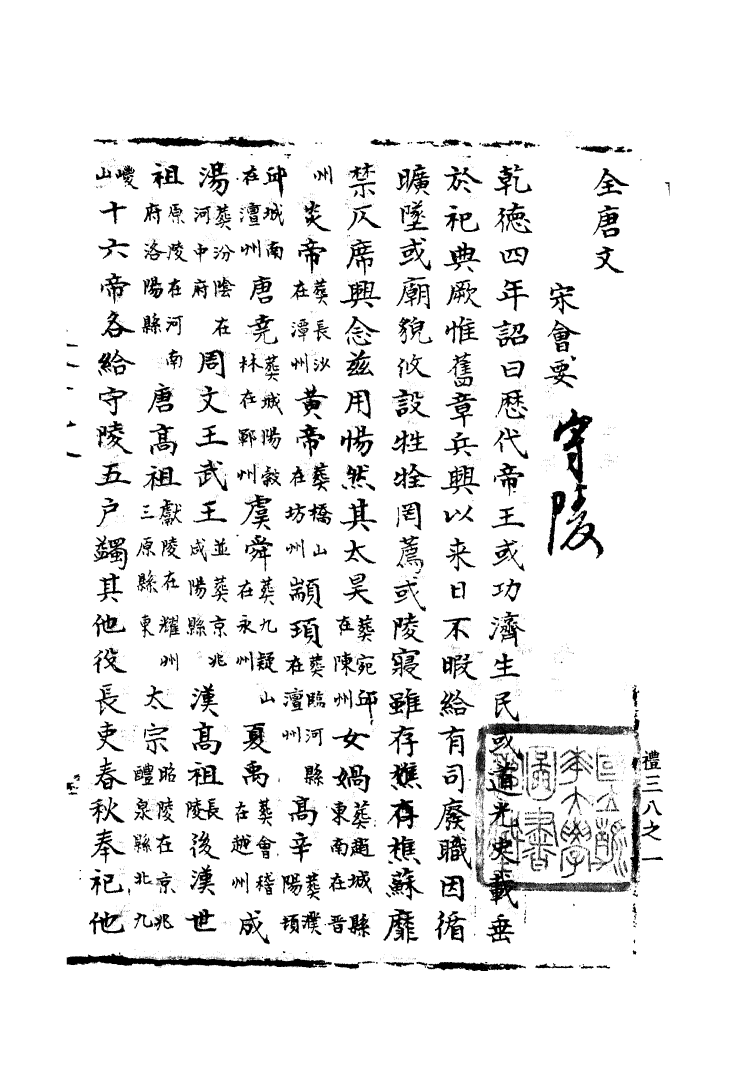 禮三八之一
全唐文
宋會要
守陵
乾德四年詔曰歷代帝王或功濟生民或道光史載垂
於祀典厥惟舊章兵興以来日不暇給有司廢職因循
曠墜或廟貌攸設牲牷罔薦或陵寢雖存樵存樵蘇靡
禁仄席興念兹用惕然其太昊葬宛邱在陳州女媧葬趙城縣東南在晋
州炎帝葬長沙在潭州黄帝葬橋山在坊州顓頊葬臨河縣在澶州高辛葬濮陽頓
邱城南在澶州唐堯葬城陽穀林在鄆州虞舜葬九疑山在永州夏禹葬會稽在越州成
湯葬汾陰在河中府周文王武王並葬京兆咸陽縣漢髙祖長陵後漢世
祖原陵在河南府洛陽縣唐髙祖獻陵在耀州三原縣東太宗昭陵在京兆醴泉縣北九
嵕山十六帝各給守陵五户蠲其他役長吏春秋奉祀他